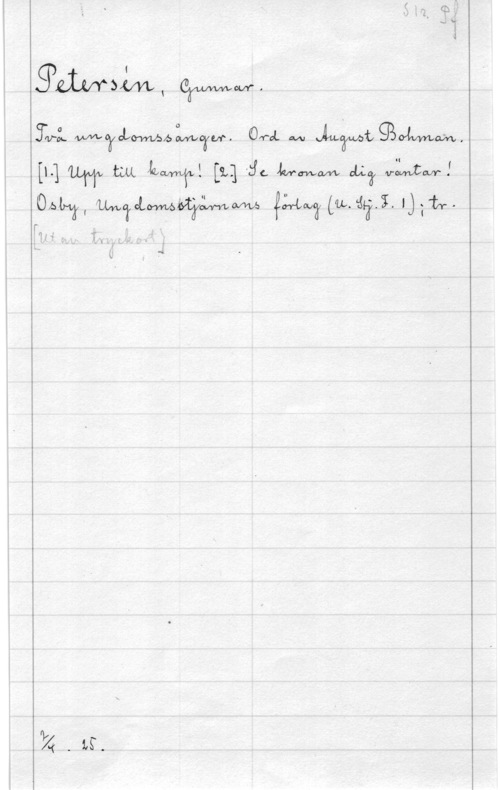 S 12. Pf
Petersén, Gunnar.
Två ungdomssånger. Ord av August Bohman.
[1.] Upp till kamp! [2.] Se kronan dig väntar!
Osby, Ungdomsstjärnans förlag (U. Stj. F. 1); tr.
[utan tryckort]
2/4. 25.